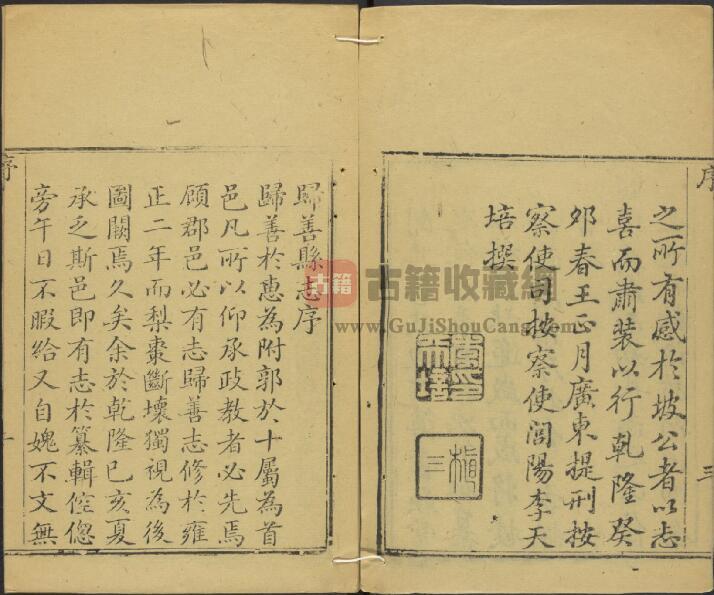 序
三
之所有感於坡公者以志
喜而肅装以行乾隆癸
夘春王正月廣東提刑按
察使司按察使閭陽李天
培撰
歸善縣志序
歸善於惠為附郭於十屬為首
邑凡所以仰承政教者必先焉
顧郡邑必有志歸善志修於雍
正二年而梨棗斷壞獨視為後
圖闕焉久矣余於乾隆已亥夏
承乏斯邑即有志於纂輯倥偬
旁午日不暇給又自媿不文無
序
古籍
古籍收藏網
www.GuJiShouCang.com